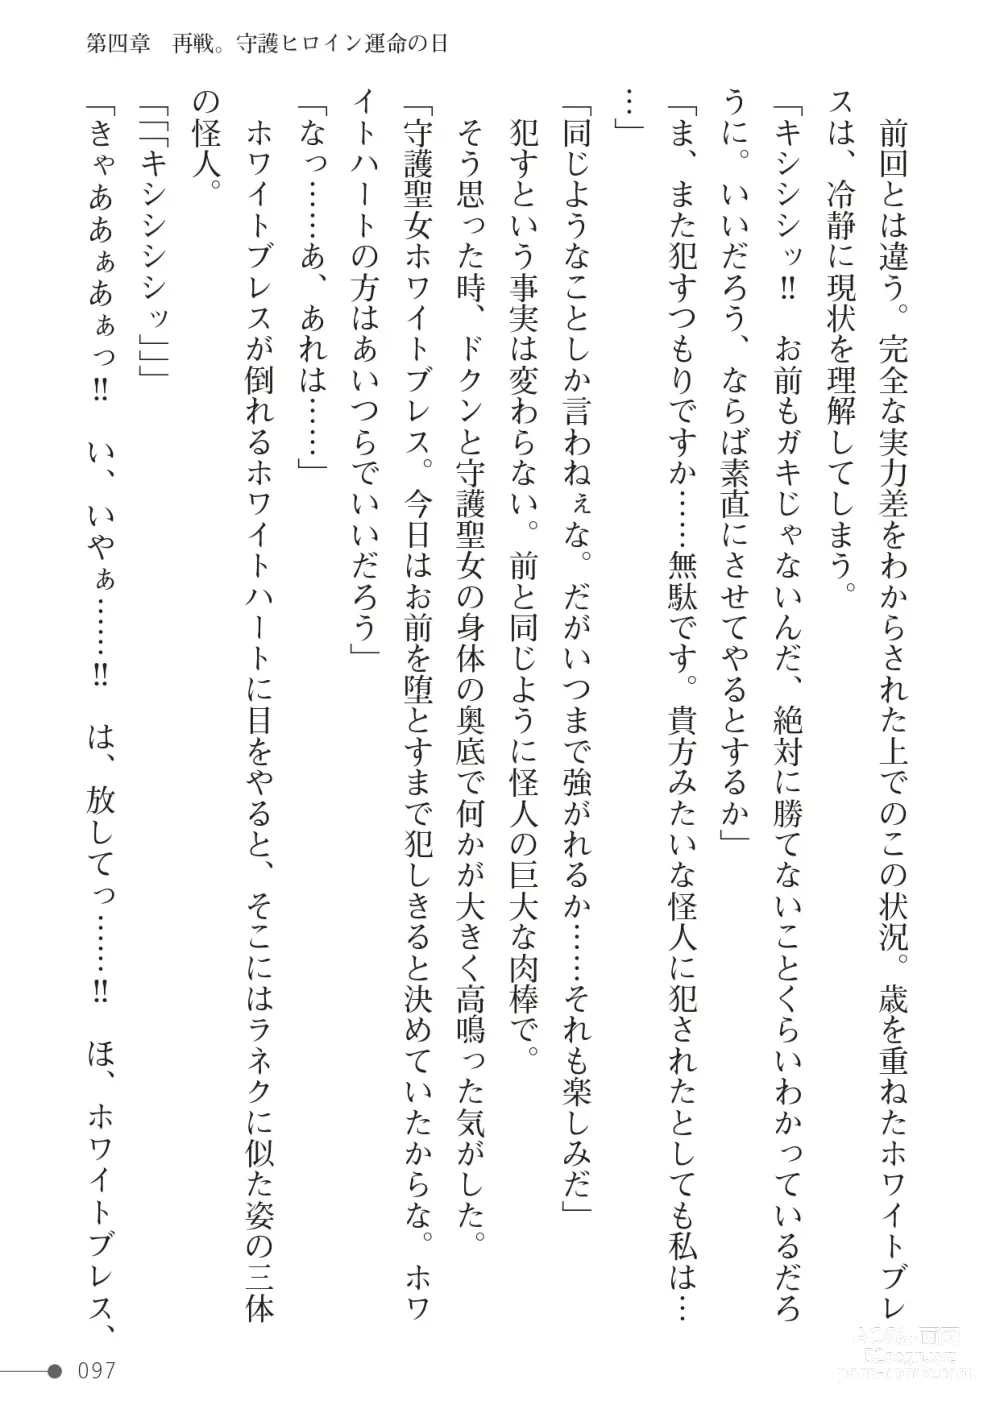 第四章　再戦。守護ヒロイン運命の日
　前回とは違う。完全な実力差をわからされた上でのこの状況。歳を重ねたホワイトブレ
スは、冷静に現状を理解してしまう。
「キシシシッ‼　お前もガキじゃないんだ、絶対に勝てないことくらいわかっているだろ
うに。いいだろう、ならば素直にさせてやるとするか」
「ま、また犯すつもりですか……無駄です。貴方みたいな怪人に犯されたとしても私は…
…」
「同じようなことしか言わねぇな。だがいつまで強がれるか……それも楽しみだ」
　犯すという事実は変わらない。前と同じように怪人の巨大な肉棒で。
　そう思った時、ドクンと守護聖女の身体の奥底で何かが大きく高鳴った気がした。
「守護聖女ホワイトブレス。今日はお前を堕とすまで犯しきると決めていたからな。ホワ
イトハートの方はあいつらでいいだろう」
「なっ……あ、あれは……」
　ホワイトブレスが倒れるホワイトハートに目をやると、そこにはラネクに似た姿の三体
の怪人。
「「「キシシシシッ」」」
「きゃああぁあぁっ‼　い、いやぁ……‼　は、放してっ……‼　ほ、ホワイトブレス、
097